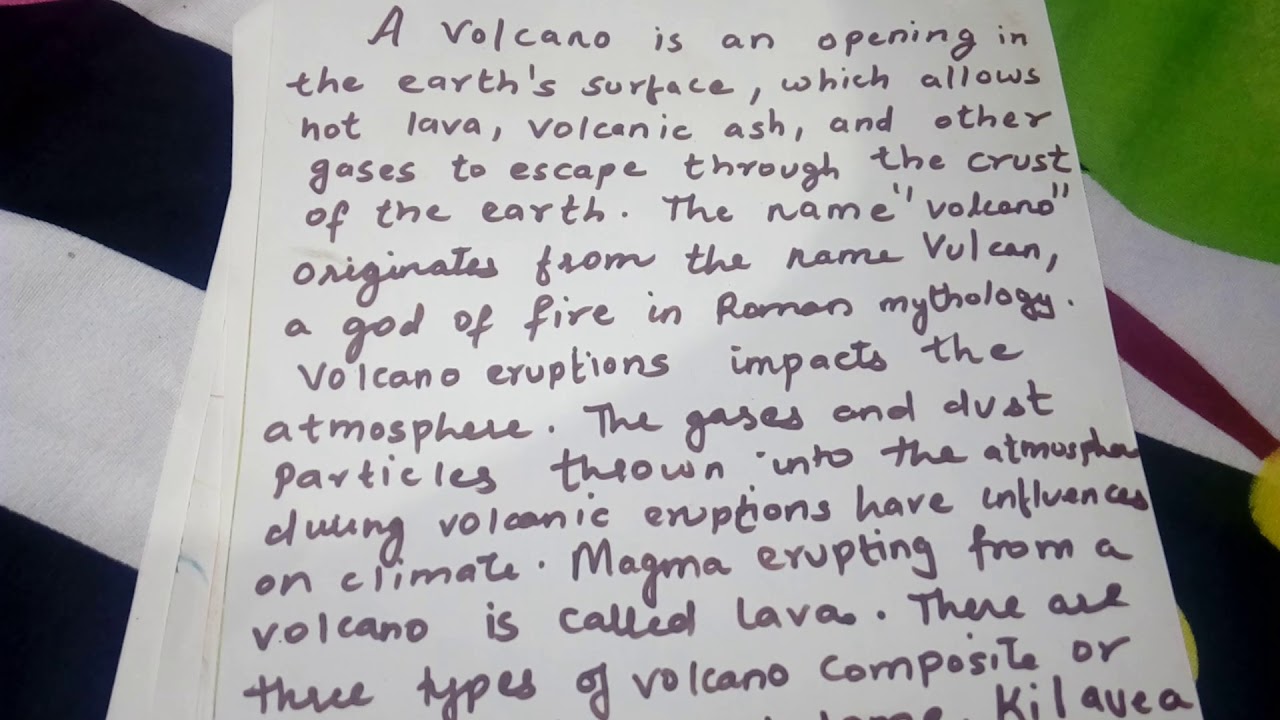 A volcano is an opening in
the earth's surface, which allows
hot lava, volcanic ash, and other
gases to escape through the crust
of the earth. The name "volcano"
originates from the name Vulcan,
a god of fire in Roman mythology.
Volcano eruptions impacts the
atmosphere. The gases and dust
particles thrown into the atmosphere
during volcanic eruptions have influences
on climate. Magma erupting from a
volcano is called lava. There are
three types of volcano composite or
Kilavea